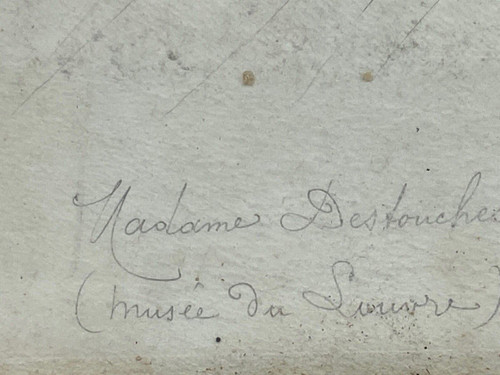 Madame Destouche
(musée du Louvre)